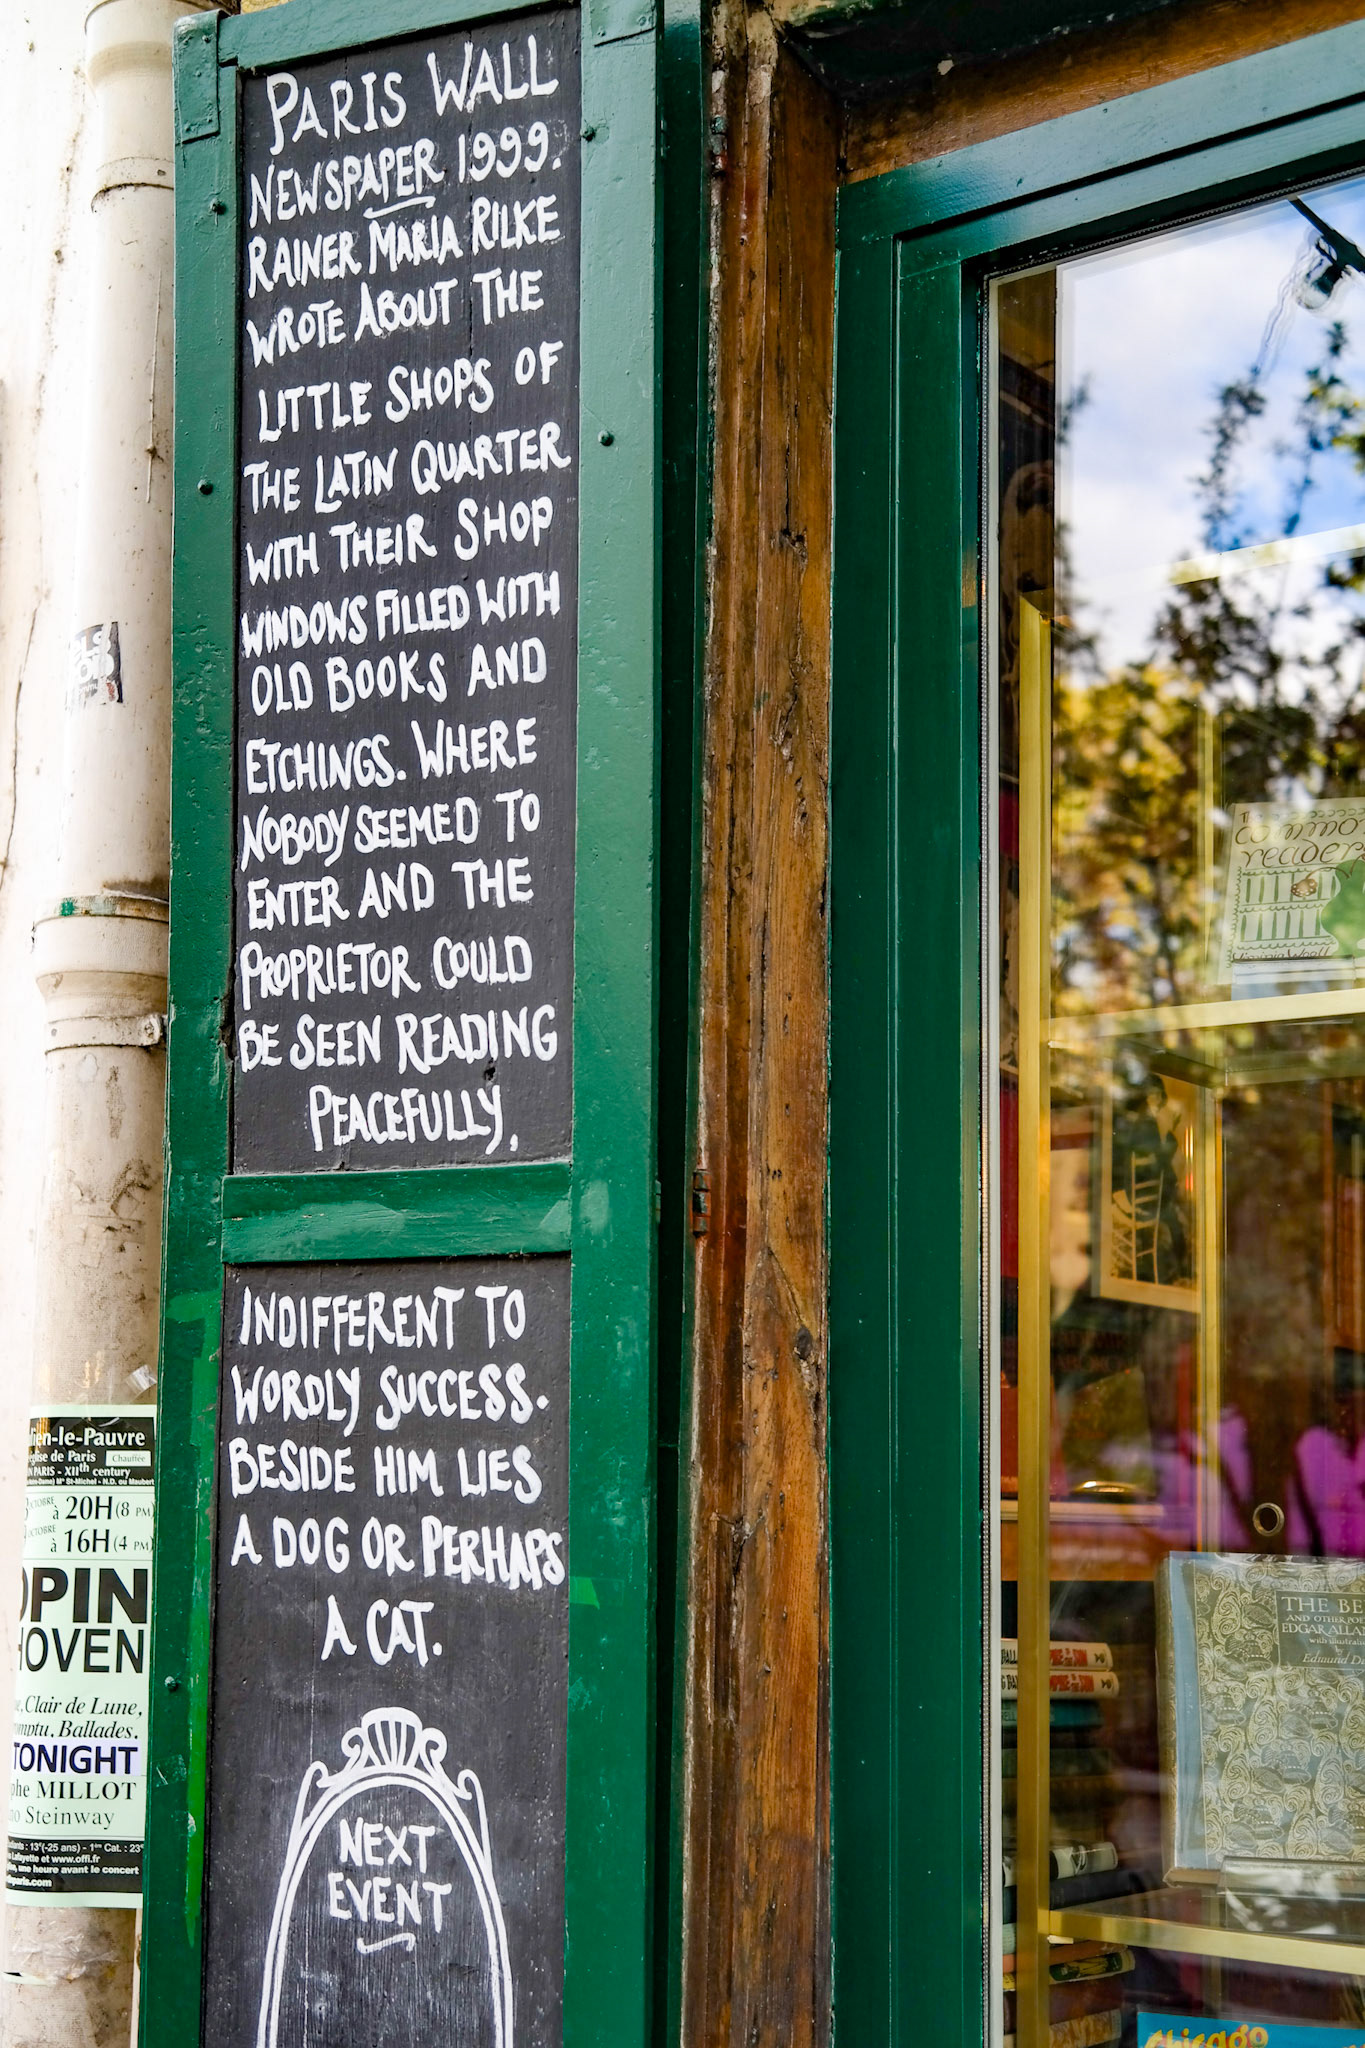 PARIS WALL
NEWSPAPER 1999.
RAINER MARIA RILKE
WROTE ABOUT THE
LITTLE SHOPS OF
THE LATIN QUARTER
WITH THEIR SHOP
WINDOWS FILLED WITH
OLD BOOKS AND
ETCHINGS. WHERE
NOBODY SEEMED TO
ENTER AND THE
PROPRIETOR COULD
BE SEEN READING
PEACEFULLY,
INDIFFERENT TO
WORDLY SUCCESS.
BESIDE HIM LIES
A DOG OR PERHAPS
A CAT.
NEXT
EVENT
lien-le-Pauvre
église de Paris Chauffée
N PARIS - XIIth century
OCTOBRE à 20H (8 PM)
OCTOBRE à 16H (4 PM)
OPIN
HOVEN
Clair de Lune,
omptu, Ballades,
TONIGHT
phe MILLOT
no Steinway
: 13€(-25 ans) - 1ère Cat. : 23€
Lafayette et www.offi.fr
une heure avant le concert
The
common
reader
Virginia Woolf
THE BE
AND OTHER POE
EDGAR ALLA
with illustra
Edmund Du
Chicago